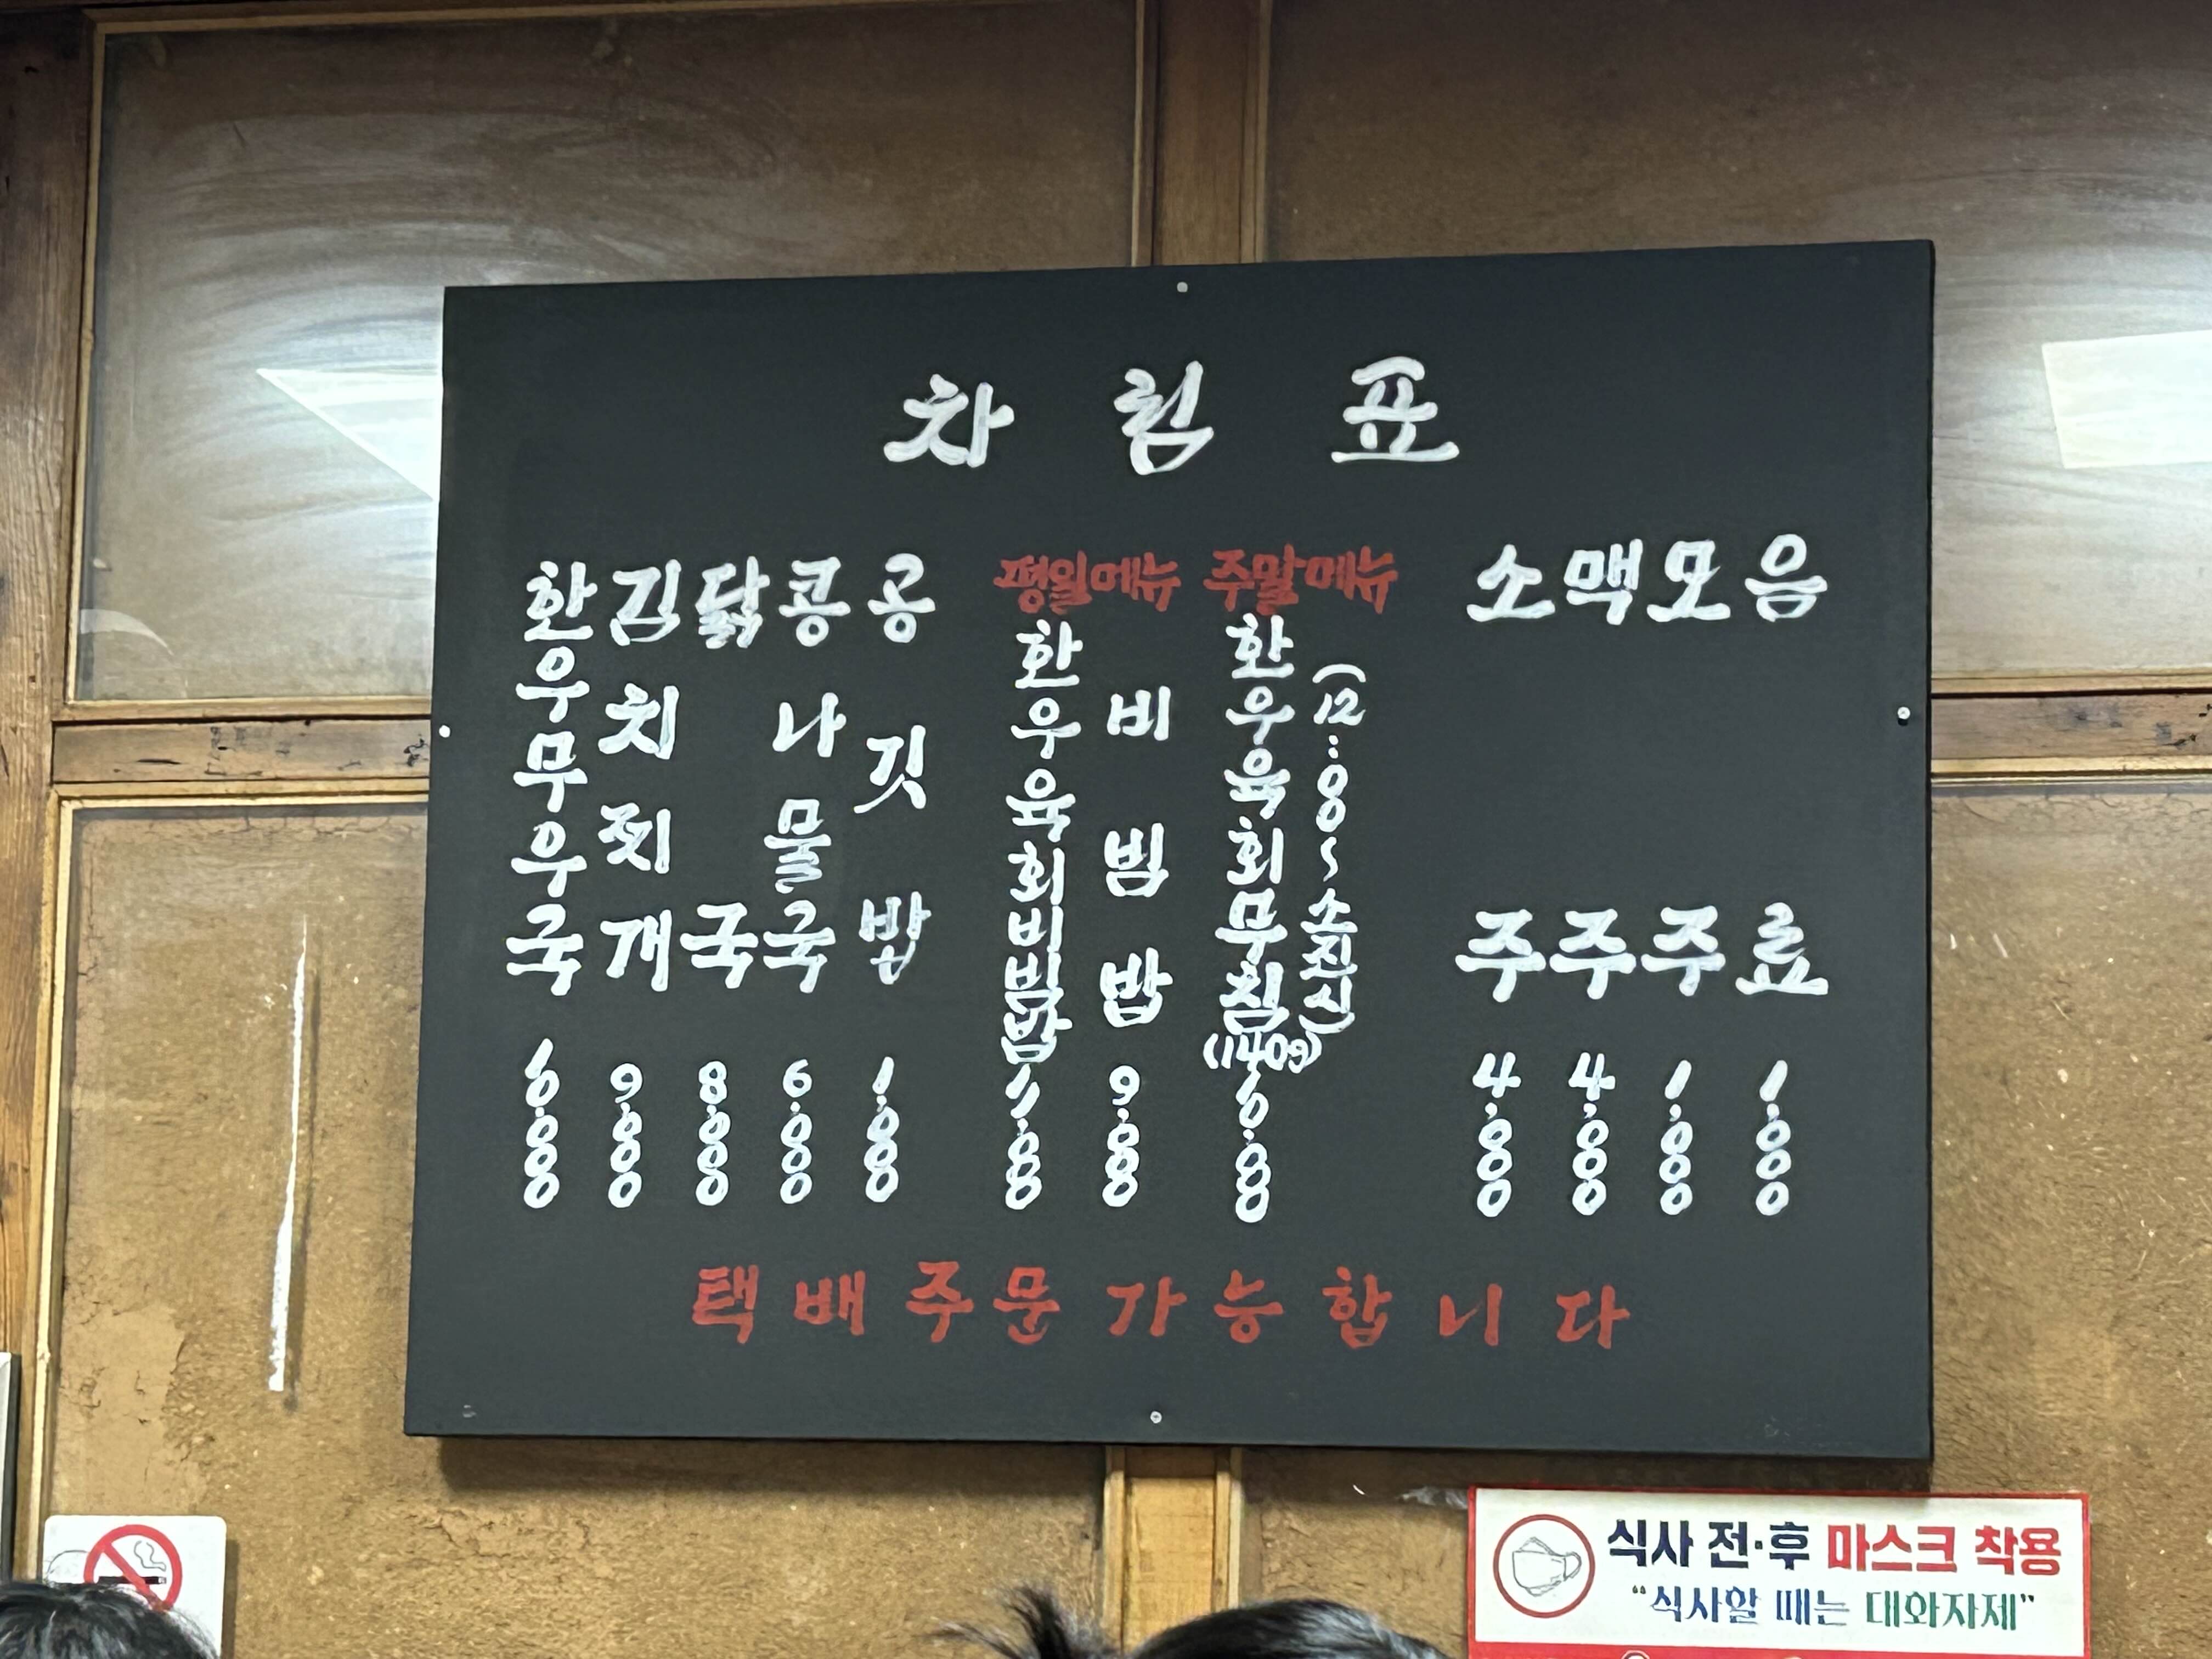 차림표
한우무우국 10.000
김치찌개 9.000
닭국 8.000
콩나물국 6.000
공깃밥 1.000
평일메뉴
한우육회비빔밥 11.000
비빔밥 9.000
주말메뉴
한우육회무침(140g)
(12:00~소진시)
소주 4.000
맥주 4.000
모주 1.000
음료 1.000
택배주문 가능합니다
식사 전·후 마스크 착용
“식사할 때는 대화자제”